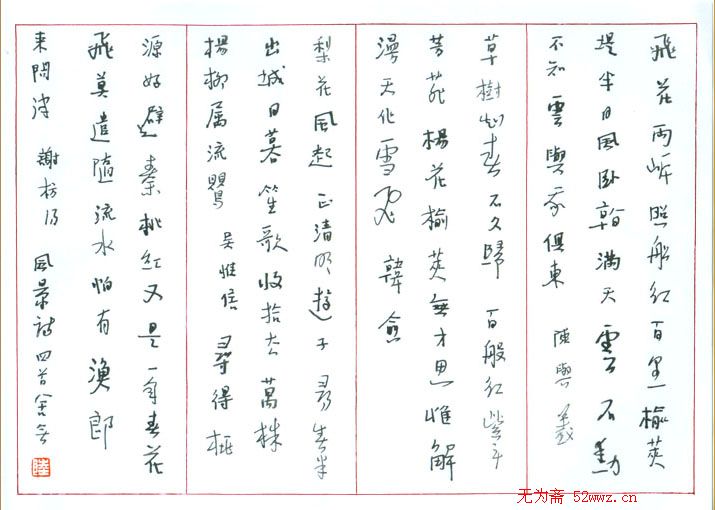 飛花兩岸照船紅百里榆莢
堤半日風臥看滿天雲不動
不知雲與我俱東 陳與義
草樹知春不久歸 百般紅紫鬥
芳菲楊花榆莢無才思惟解
漫天作雪飛 韓愈
梨花風起正清明遊子尋春半
出城日暮笙歌收拾去萬株
楊柳屬流鶯 吳惟信 尋得桃
源好避秦桃紅又是一年春花
飛莫遣隨流水怕有漁郎
來問津 謝枋得 風景詩四首
陸
无为斋 52wwz.cn